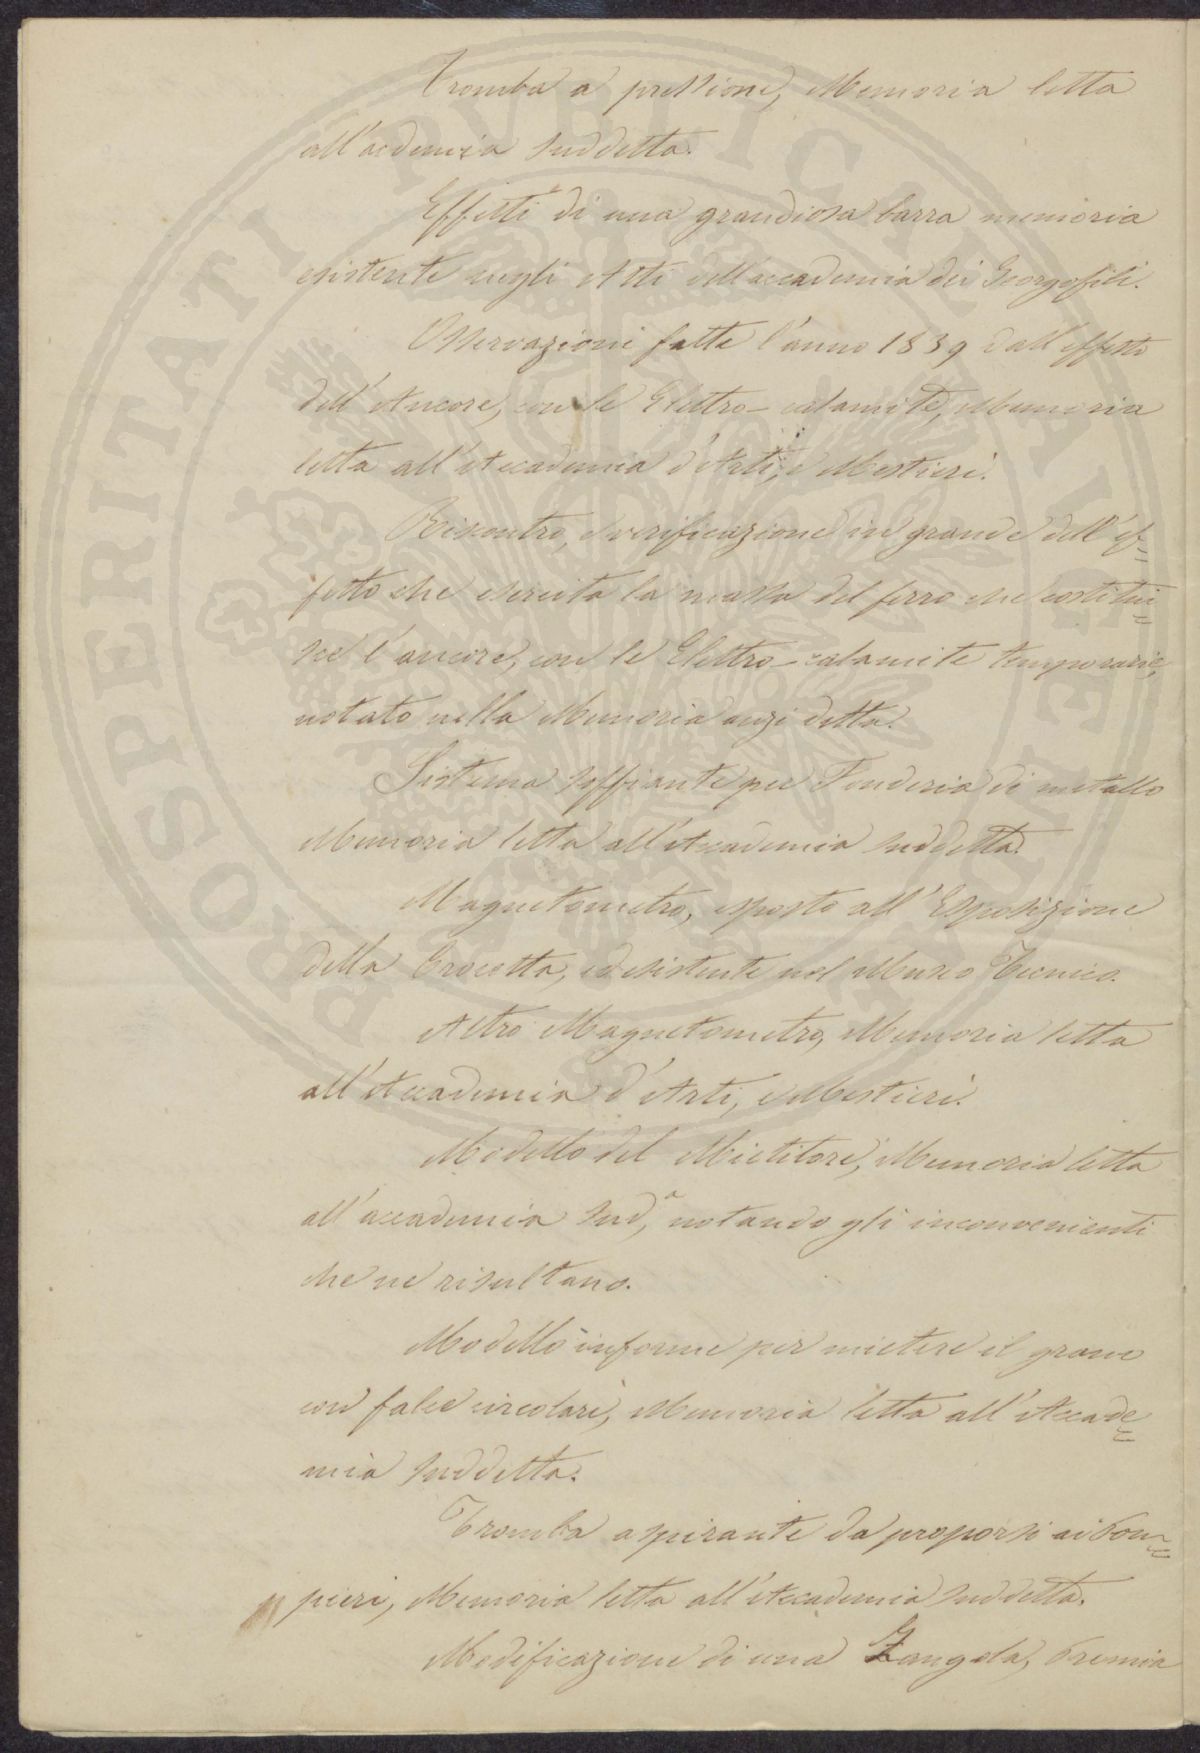 Tromba a pressione, Memoria letta
all'acdemia suddetta.
Effetti di una grandiosa barra memoria
esistente negli Atti dell'accademia dei Georgofili.
Osservazioni fatte l'anno 1839 dall'effetto
dell'Ancore, con le Elettro-calamite, Memoria
letta all'Accademia d'Arti, e Mestieri.
Riscontro, e verificazione in grande dell'ef=
fetto che esercita la massa del ferro che costitui=
sce l'ancore, con le Elettro-calamite temporarie,
notato nella Memoria anzi detta.
Sistema soffiante per Fonderia di metallo
Memoria letta all'Accademia suddetta.
Magnetometro, esposto all'Esposizione
della Crocetta, ed esistente nel Museo Tecnico.
Altro Magnetometro, Memoria letta
all'Accademia d'Arti, e Mestieri.
Modello del Mietitore, Memoria letta
all'accademia Sud,a notando gli inconvenienti
che ne risultano.
Modello informe per mietere il grano
con falce circolari, Memoria letta all'Accade=
mia suddetta.
Tromba aspirante da proporsi ai Pom=
pieri, Memoria letta all'Accademia suddetta.
Modificazione di una Zangola, Premia
PROSPERITATI PUBLICAE AUGENDAE